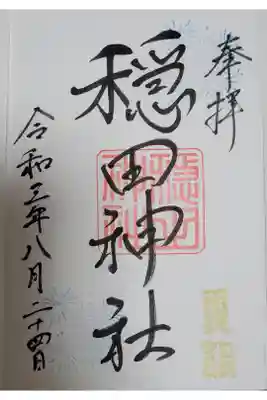 奉拝
穏田神社
令和三年八月二十四日